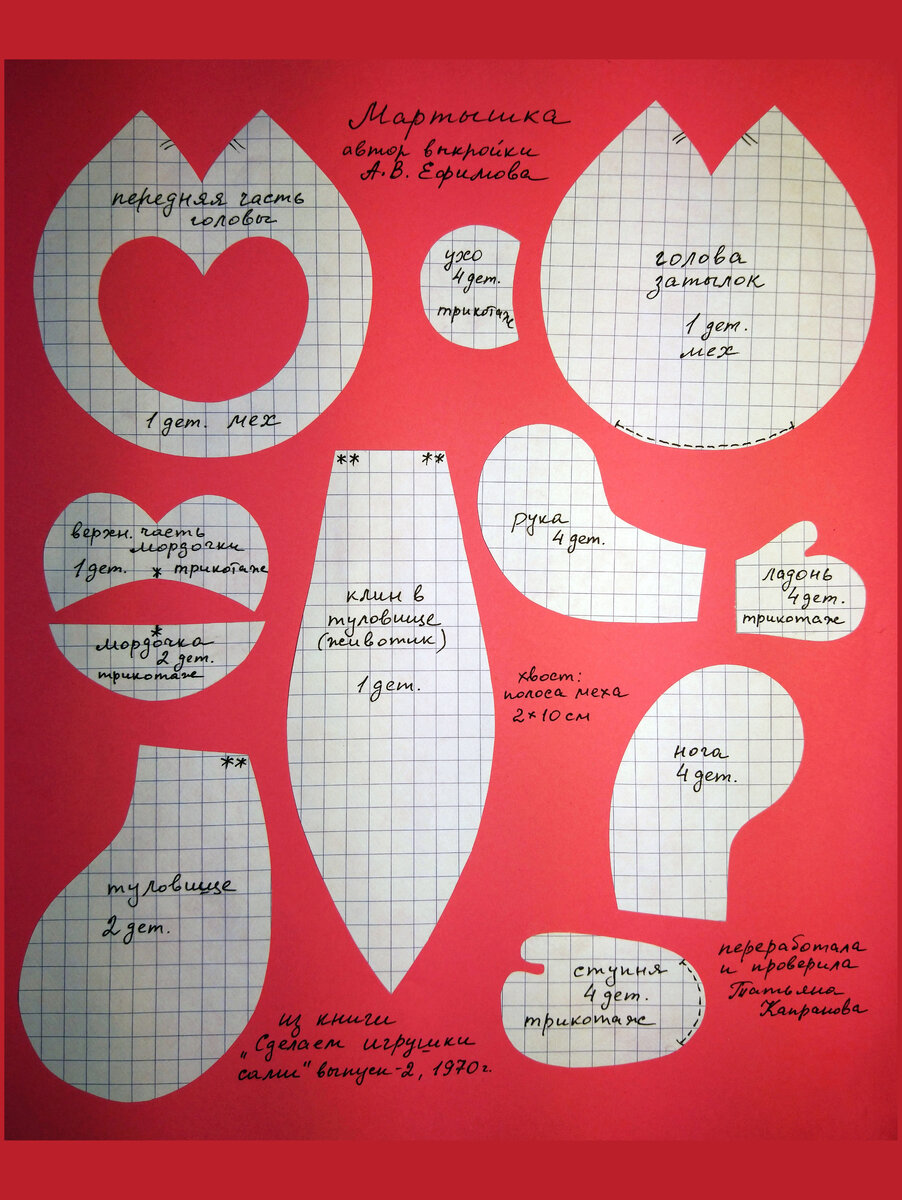 Мартышка
автор выкройки
А.В. Ефимова
передняя часть
головы
1 дет. мех
ухо
4 дет.
трикотаж
голова
затылок
1 дет.
мех
верхн. часть
мордочки
1 дет. * трикотаж
*
мордочка
2 дет.
трикотаж
** **
клин в
туловище
(животик)
1 дет.
рука
4 дет.
ладонь
4 дет.
трикотаж
хвост:
полоса меха
2×10 см
нога
4 дет.
**
туловище
2 дет.
ступня
4 дет.
трикотаж
переработала
и проверила
Татьяна
Капранова
из книги
„Сделаем игрушки
сами" выпуск-2, 1970 г.